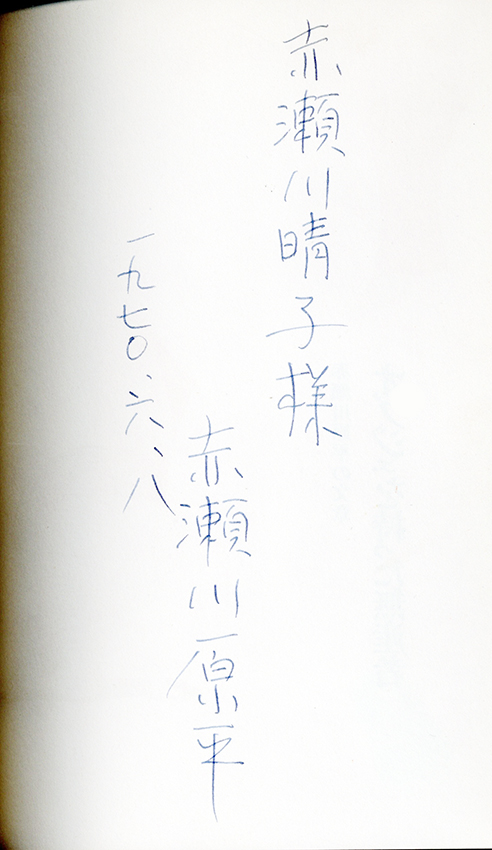 赤瀬川晴子様
赤瀬川原平
一九七〇、六、八